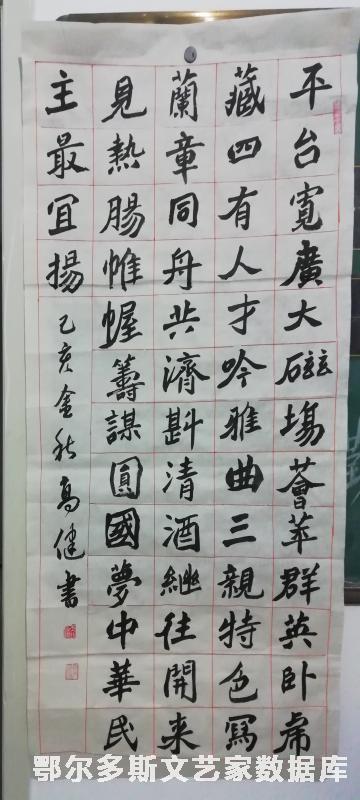 平台寬廣大磁場薈萃群英卧虎
藏四有人才吟雅曲三親特色寫
蘭章同舟共濟斟清酒繼往開来
見熱腸帷幄籌謀圓國夢中華民
主最宜揚
乙亥金秋高健書
鄂尔多斯文艺家数据库